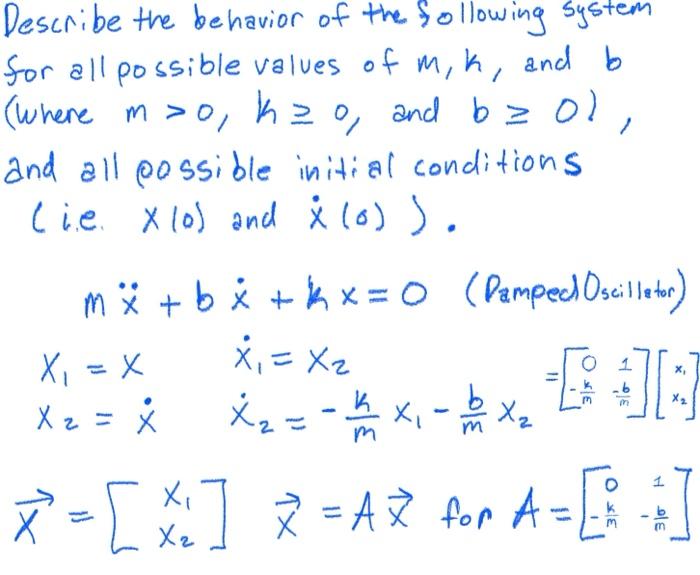 Describe the behavior of the following system
for all possible values of m, k, and b
(where m > 0, k ≥ 0, and b ≥ 0),
and all possible initial conditions
(i.e. x(0) and ẋ(0)).
mẍ + bẋ + kx = 0 (Damped Oscillator)
x₁ = x ẋ₁ = x₂
x₂ = ẋ ẋ₂ = -k/m x₁ - b/m x₂ = [0 1; -k/m -b/m] [x₁; x₂]
x⃗ = [x₁; x₂] x⃗ = A x⃗ for A = [0 1; -k/m -b/m]